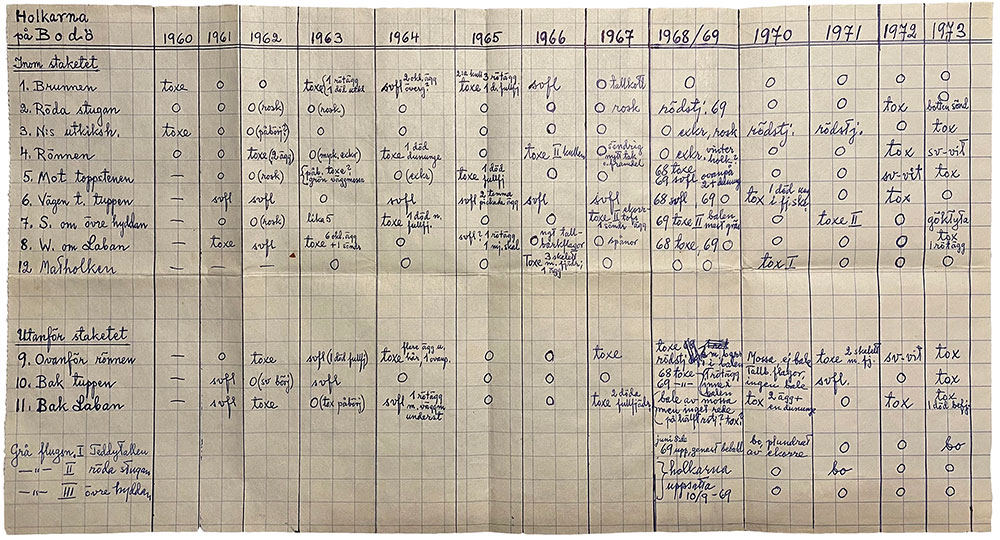 Holkarna
på Bodö 1960 1961 1962 1963 1964 1965 1966 1967 1968/69 1970 1971 1972 1973
Inom staketet
1. Brunnen toxe o o toxe 1 rötägg 1 död svfl 2 okl. ägg överg? 2:a kull toxe 3 rötägg 1 d. fullfj svfl o tallkott o o o o o
2. Röda stugan o o o (rosk) o (rosk) o o o o rosk rödstj. 69 o o tox botten sönd
3. N:s utkiksh. toxe o o (påbörj?) o o o o o o exkr, rosk rödstj. rödstj. o tox
4. Rönnen o o toxe (2 ägg) o (myck. exkr) toxe 1 död dununge o toxe II kullen o ändrig nytt tak o framdel o exkr. vinter holk? o o tox sv-vit
5. Mot toppstenen — o o (rosk) påb. toxe? grön väggmossa o (exkr) toxe 1 död fullfj o o 68 toxe 69 svfl ovanpå 2 t dunung o o sv-vit tox
6. Vägen t. tuppen — svfl svfl o svfl svfl 2 tomma pickade ägg svfl svfl 68 svfl 69 o tox 1 död i o tox o
7. S. om övre hyddan — o o (rosk) lika 5 toxe 1 död n. fullfj. o o toxe II 1 sönd. ägg 69 toxe II balen mest gräs o toxe II o göktyta
8. W. om Laban — toxe svfl toxe 6 okl. ägg + 1 sönd. o svfl? 1 rötägg 1 nytt tall- barkflagor o spånor 68 toxe, 69 o o o o tox 1 rötägg
12 Matholken — — — o o o Toxe 3 skelett m. fjädr, 1 ägg o o o tox I o o o
Utanför staketet
9. Ovanför rönnen — o toxe svfl (1 död fullfj) toxe flera ägg u. här 1 överg. o o toxe toxe 69 rödstj. Mossa ej bale toxe 2 skelett m. fj. sv-vit tox
10. Bak tuppen — svfl o (sv börj) svfl o o o o 68 toxe 69 —"— 1 rötägg innet balen Tallb. flagor, ingen bale svfl. o tox
11. Bak Laban — svfl toxe o (tox påbörj) svfl 1 rötägg n. väggen underst o o toxe 2 döda fullfjädr bale av mossa men inget rede på hållt rstj? tox? tox 2 ägg + en dununge o tox tox 1 död befj.
Grå flugsn. I Teddytallen juni 8:de 69 upp, genast bebodd bo, plundrat av ekorre o o bo
—"— II röda stugan holkarna o bo o o
—"— III övre hyddan uppsatta 10/9 -69 o o o o